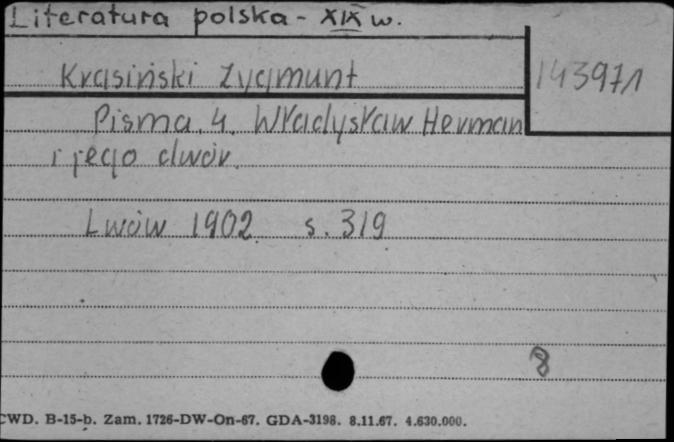 Literatura polska - XIX w.
Krasiński Zygmunt
143971
Pisma. 4. Władysław Herman
i jego dwór.
Lwów 1902 s. 319
8
CWD. B-15-b. Zam. 1726-DW-On-67. GDA-3198. 8.11.67. 4.630.000.